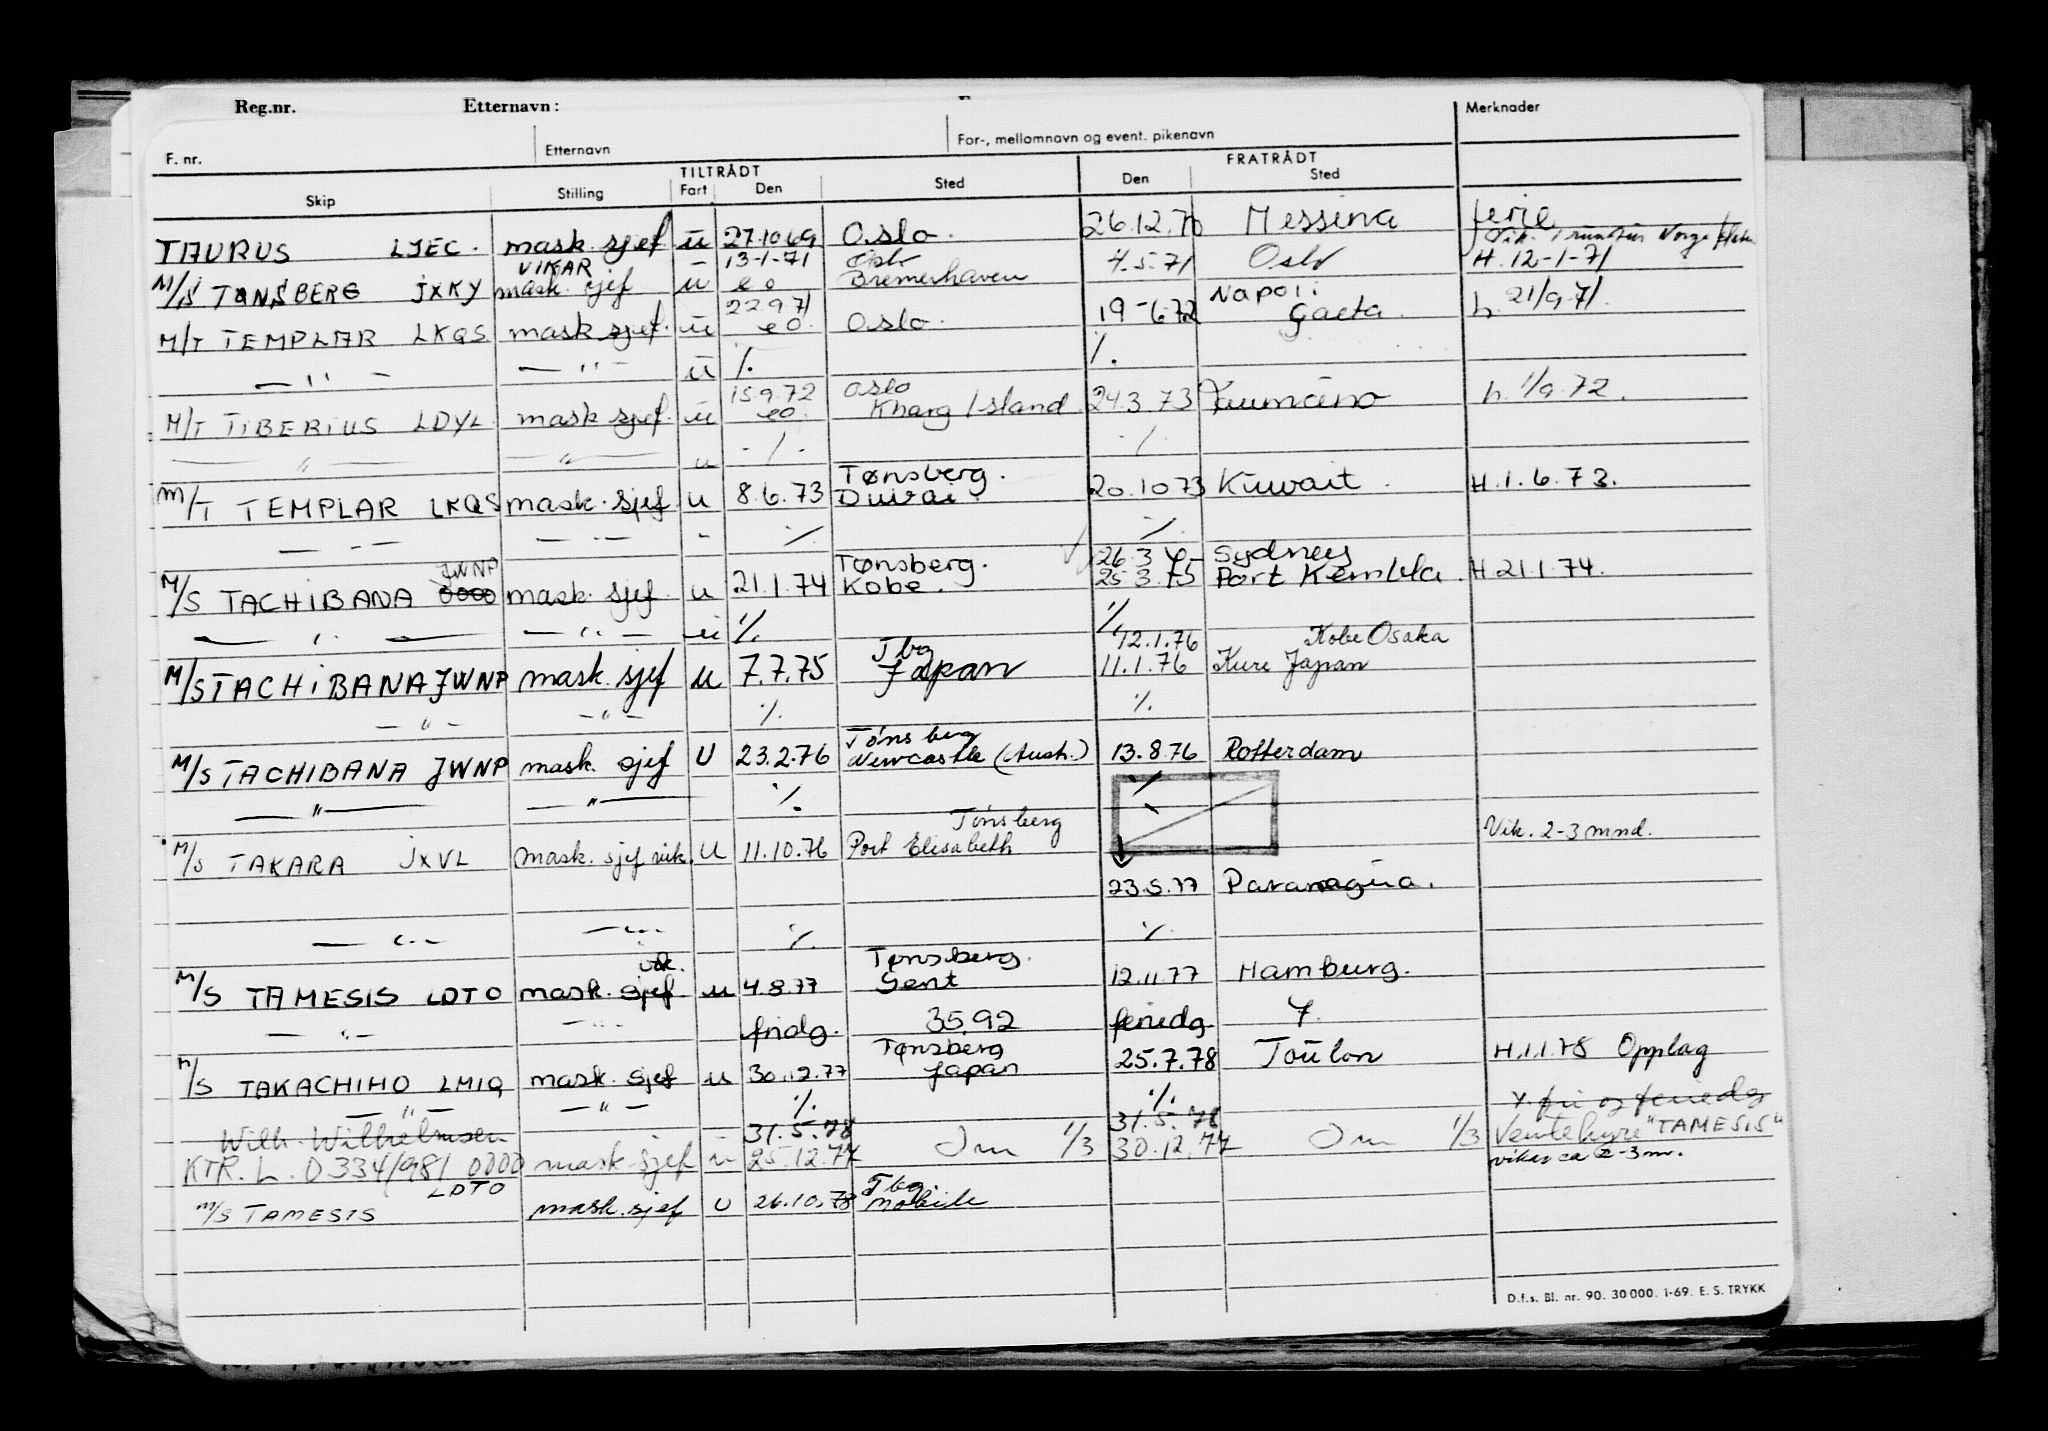 Reg.nr. Etternavn:
F. nr. Etternavn For-, mellomnavn og event. pikenavn Merknader
TILTRÅDT FRATRÅDT
Skip Stilling Fart Den Sted Den Sted
TAURUS LJEC. mask. sjef u 27.10.69 Oslo. 26.12.70 Messina ferie
VIKAR - 13-1-71 Oslo Vik. 1 rundtur Norge
M/S TØNSBERG JXKY mask. sjef u eo Bremerhaven 4.5.71 Oslo H. 12-1-71
22.9.71 Napoli
M/T TEMPLAR LKQS mask sjef. u eo. Oslo. 19-6.72 Gaeta. h. 21/9.71.
— " — — " — u ./. ./.
15.9.72 Oslo
M/T TIBERIUS LDYL mask sjef. u eo. Kharg Island 24.3.73 Fiumcino h. 1/9.72.
— " — — " — u ./. ./.
Tønsberg.
M/T TEMPLAR LKQS mask. sjef u 8.6.73 20.10 73 Kuwait. H. 1.6.73.
— " — — " — - ./. ./.
JWNP Tønsberg. 26.3 75 Sydney
M/S TACHIBANA 0000 mask. sjef u 21.1.74 Kobe. 25.3.75 Port Kembla. H. 21.1.74.
— " — — " — u ./. ./.
Tbg 12.1.76 Kobe Osaka
M/S TACHIBANA JWNP mask. sjef u 7.7.75 Japan 11.1.76 Kure Japan
— " — — " — ./. ./.
Tønsberg
M/S TACHIBANA JWNP mask. sjef U 23.2.76 Newcastle (Aust.) 13.8.76 Rotterdam
— " — — " — ./. ./.
Tønsberg
M/S TAKARA JXVL mask. sjef vik. U 11.10.76 Port Elisabeth Vik. 2-3 mnd.
23.5.77 Paranagua.
— " — — " — ./. ./.
vik. Tønsberg.
M/S TAMESIS LDTO mask. sjef u 4.8.77 Gent 12.11.77 Hamburg.
— " — — " — fridg. 35.92 feriedg. 7.
Tønsberg
M/S TAKACHIHO LMIQ mask. sjef u 30.12.77 Japan 25.7.78 Toulon H. 1.1.78 Opplag
— " — — " — ./. ./. x. fri og feriedg
Wilh. Wilhelmsen 31.5.78 31.5.78
KTR. L. D 334/981 0000 mask sjef u 25.12.77 1/3 30.12.77 1/3 Ventehyre "TAMESIS"
LDTO Tbg vikar ca 2-3 m.
M/S TAMESIS mask. sjef U 26.10.78 Mobile
D.f.s. Bl. nr. 90. 30 000. 1-69. E. S. TRYKK